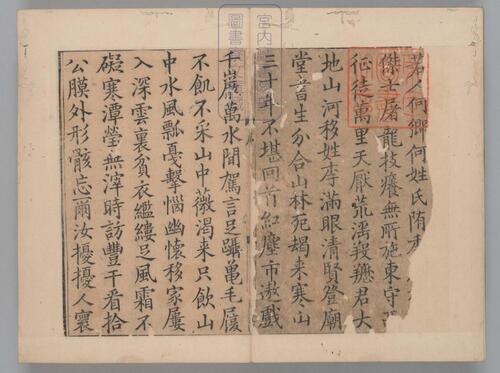 若人何鄉何姓氏隋末
傑士屠龍技癢無所施東守
征徒萬里天厭荒滛君大
地山河移姓李滿眼清賢登廟
堂昔生分合山林死朅来寒山
三十年不堪回首紅塵市遨戲
千巖萬水間駕言足躡亀毛屨
不飢不采山中薇渴来只飲山
中水風瓢戞擊惱幽懷移家屢
入深雲裏貧衣繿縷足風霜不
礙寒潭瑩無滓時訪豐干看拾
公膜外形骸忘爾汝擾擾人寰
宮内
圖書